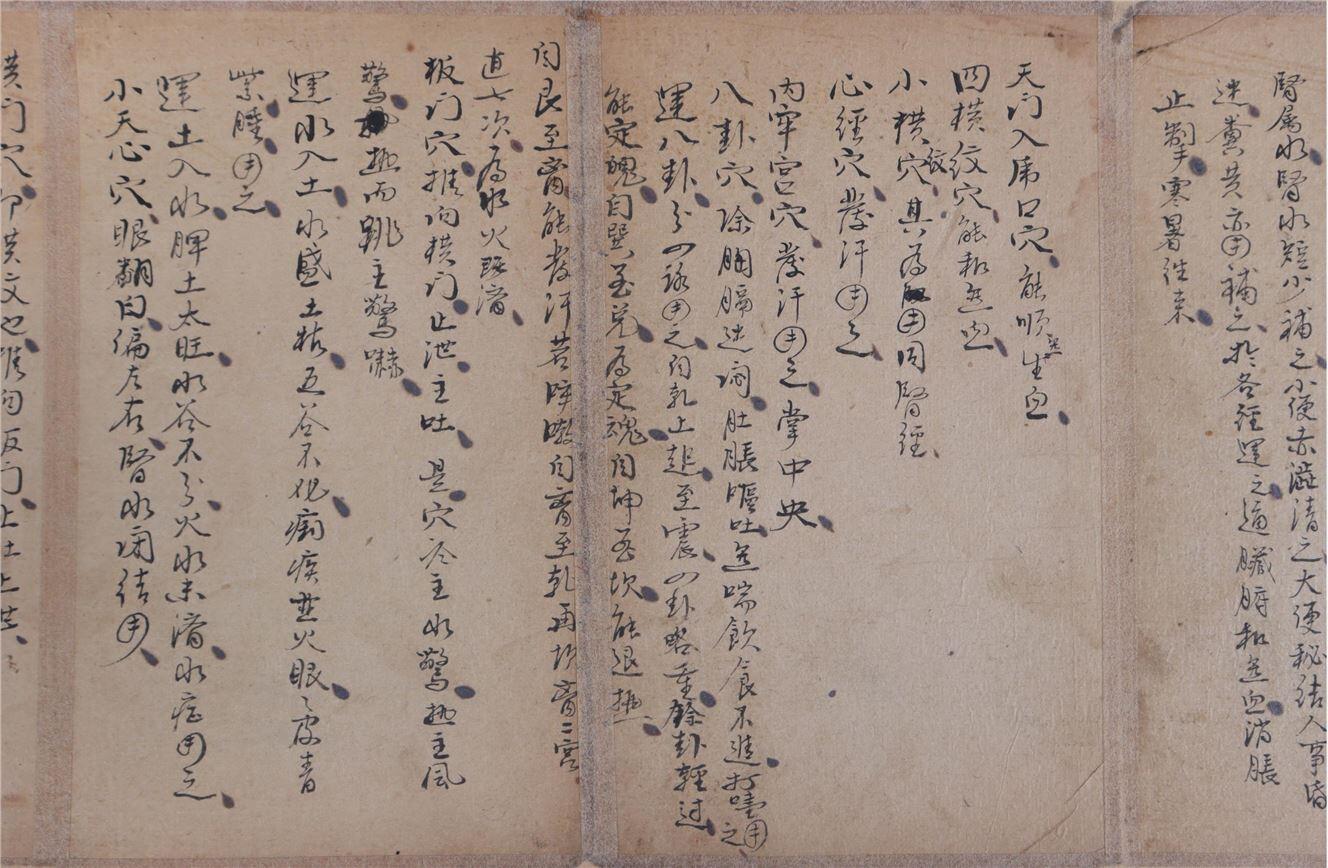 腎属水腎水短少補之小便赤澁清之大便秘结人事昏
迷糞黄亦用補之於各経運之通臟腑和氣血消脹
止掣寒暑往来
天门入虎口穴能順氣生血
四横纹穴能和氣血
小横纹穴其為用同腎経
心經穴發汗用之
内牢宫穴發汗用之掌中央
八卦穴除胸膈迷闷肚脹嘔吐氣喘飲食不進打噎用之
運八卦分四路用之自乾上起至震四卦略重餘卦輕过
能定魄自巽至兑為定魂自坤至坎能退热
自艮至离能發汗若咳嗽自离至乾再坎离二宫
直七次為水火既濟
板门穴推向横门止泄主吐是穴冷主水驚热主風
驚热而跳主驚嚇
運水入土水盛土枯五谷不化痢疾並火眼眼皮青
紫腫用之
運土入水脾土太旺水谷不分火水未濟水症用之
小天心穴眼翻白偏左右腎水闭结用